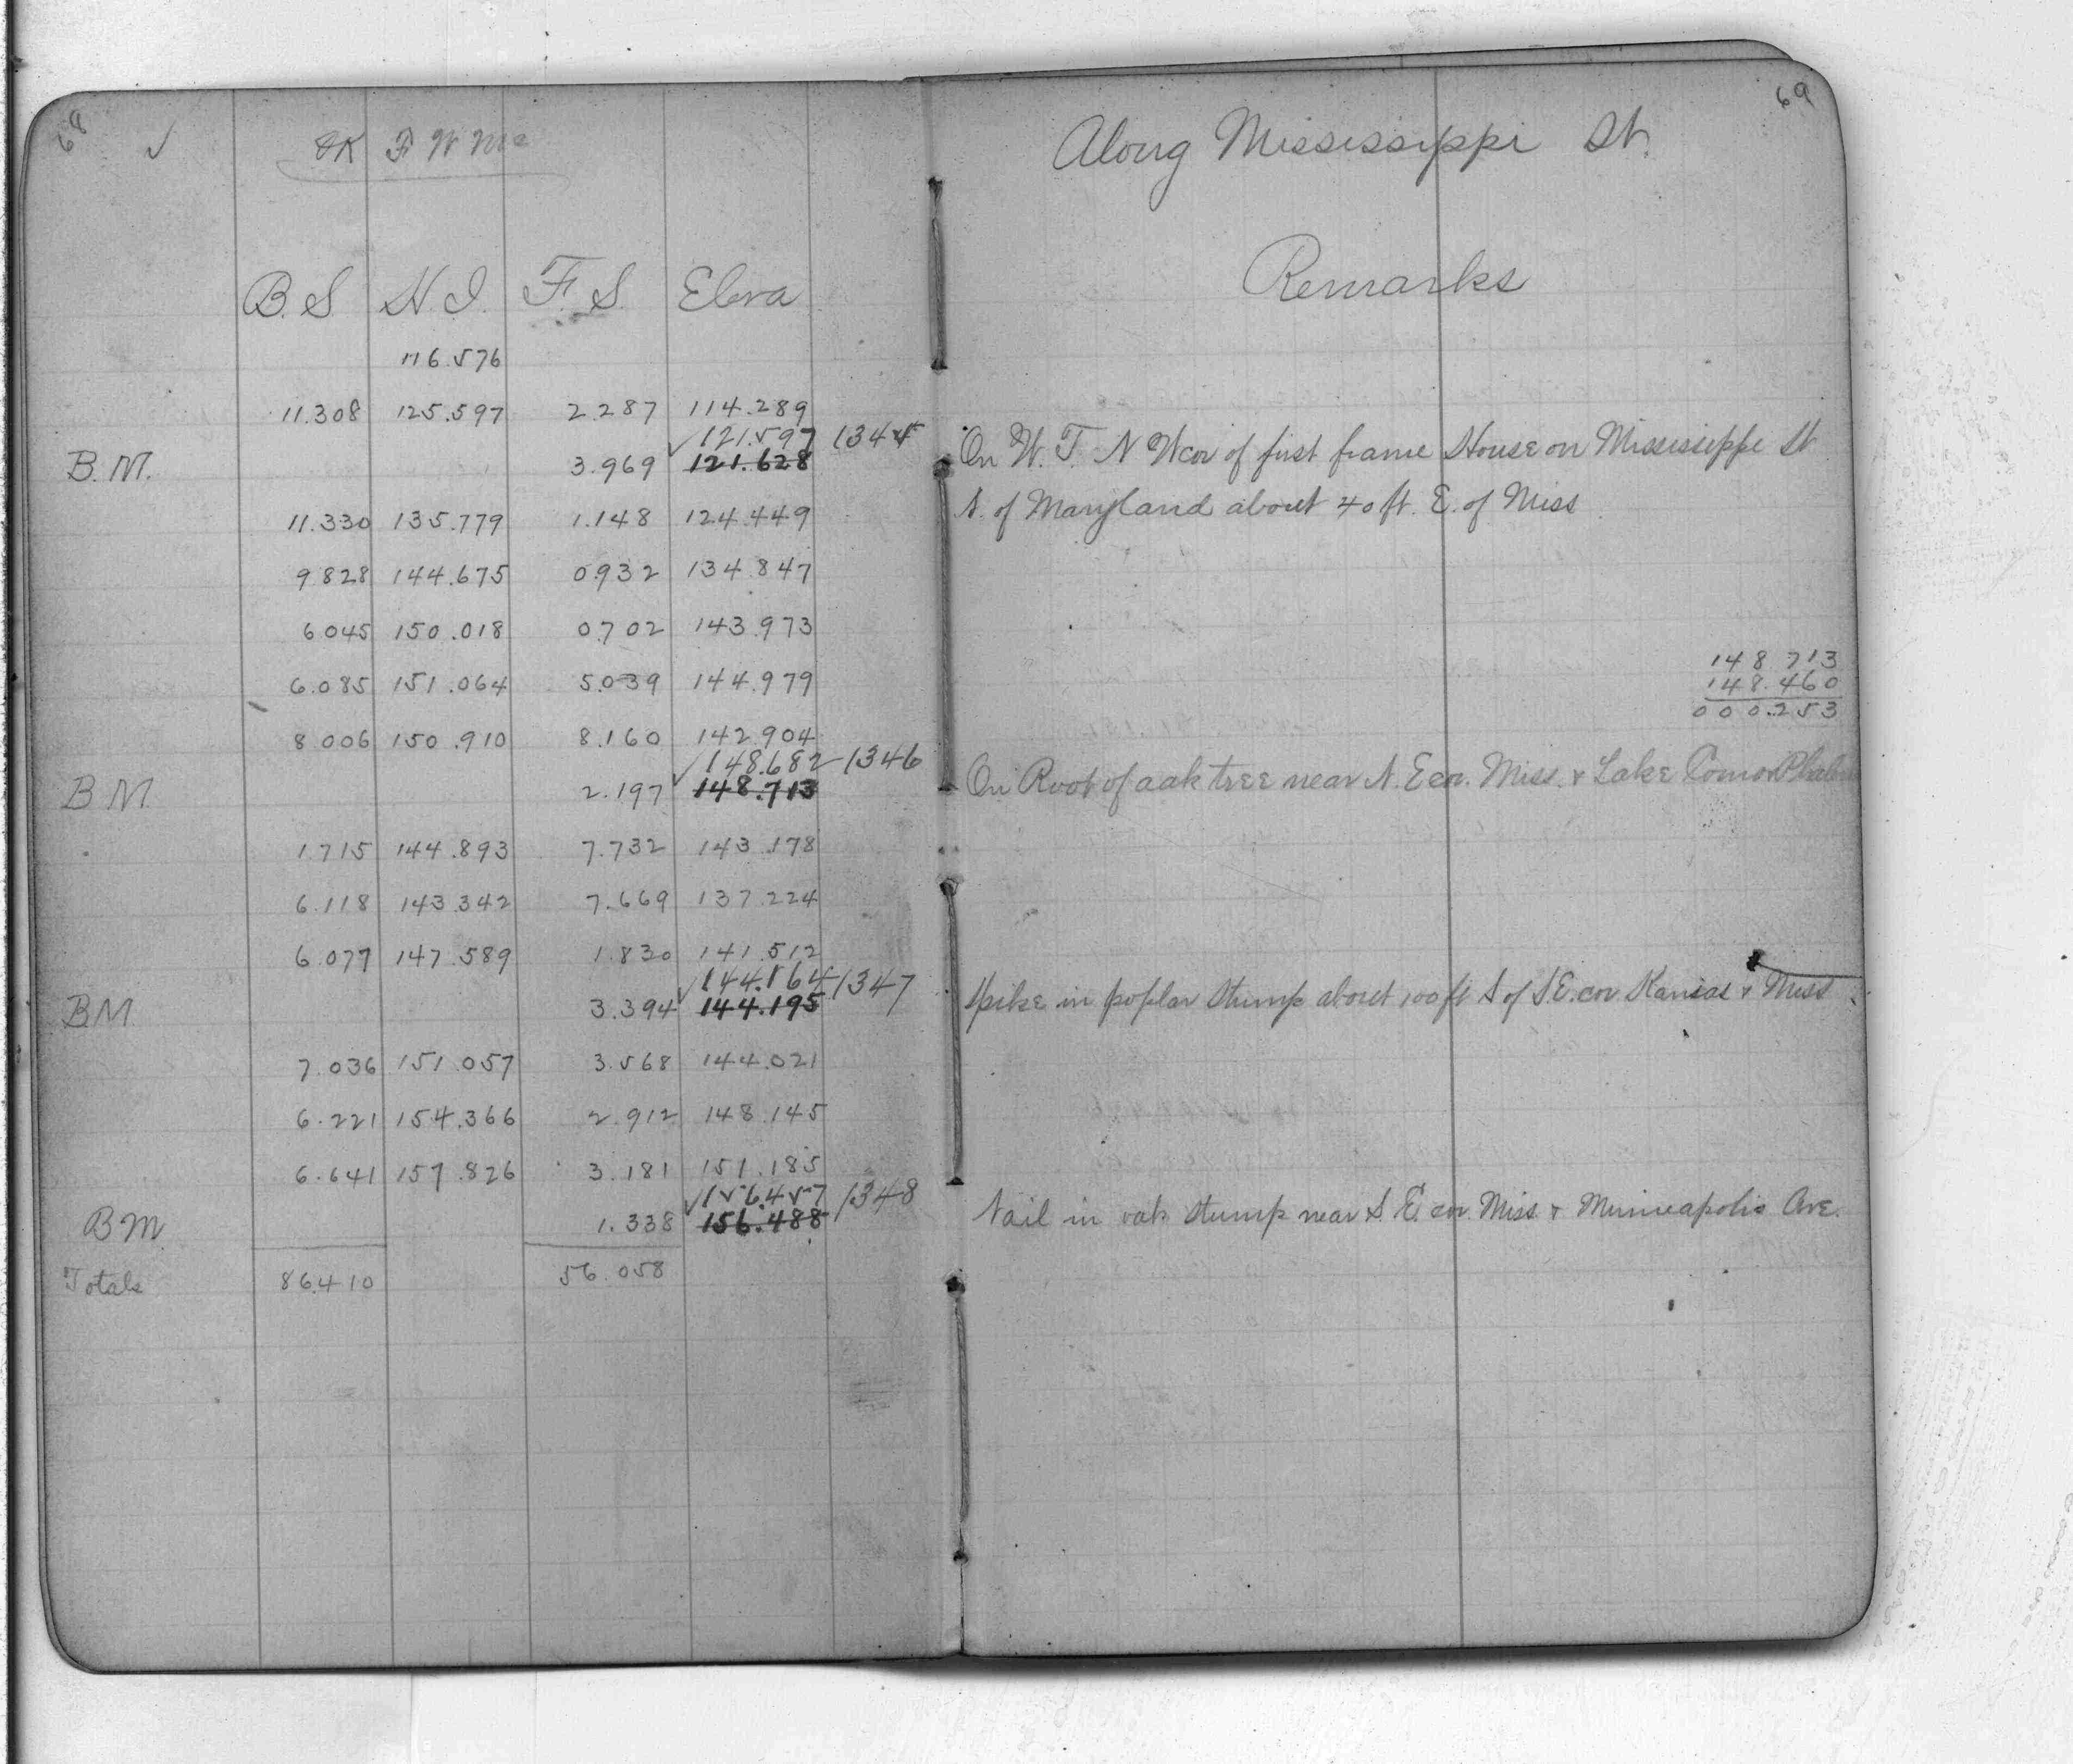 68 ✓ OK F W Mc
B.S. H.I. F.S. Eleva
116.576
11.308 125.597 2.287 114.289
✓121.597 1344
B.M. 3.969 121.628
11.330 135.779 1.148 124.449
9.828 144.675 0.932 134.847
6.045 150.018 0.702 143.973
6.085 151.064 5.039 144.979
8.006 150.910 8.160 142.904
✓148.682 1346
B M 2.197 148.713
1.715 144.893 7.732 143.178
6.118 143.342 7.669 137.224
6.077 147.589 1.830 141.512
✓144.164 1347
B M 3.394 144.195
7.036 151.057 3.568 144.021
6.221 154.366 2.912 148.145
6.641 157.826 3.181 151.185
✓156.457 1348
B M 1.338 156.488
Totals 86.410 56.058
69
Along Mississippi St.
Remarks
On W. T. N W cor of first frame House on Mississippi St
S. of Maryland about 40 ft. E. of Miss
148 713
148.460
000.253
On Root of oak tree near N. E cor. Miss. & Lake Como & Phalen
Spike in poplar stump about 100 ft S of S E. cor Kansas & Miss.
Nail in oak stump near S. E. cor. Miss & Minneapolis Ave.